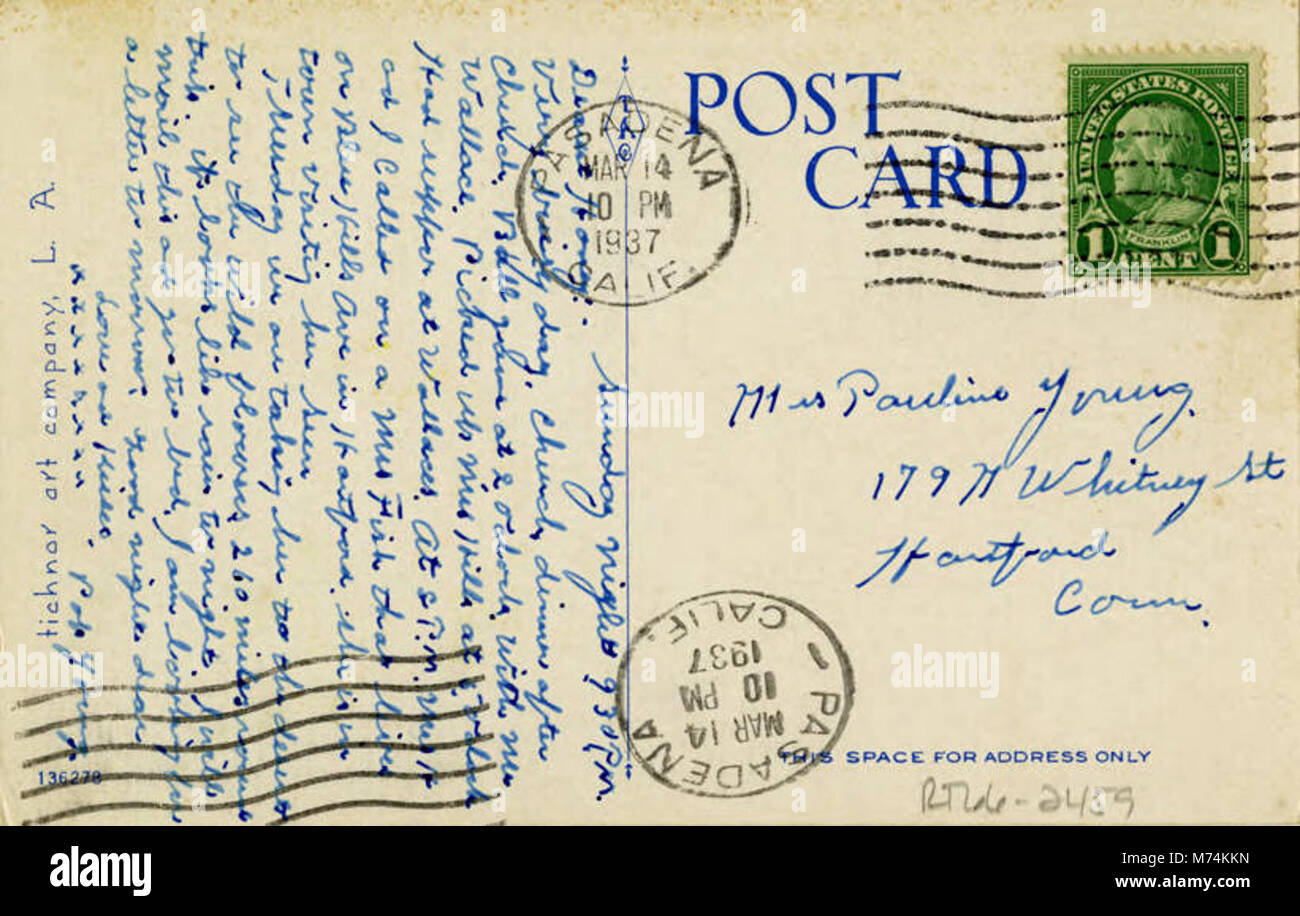 POST
CARD
UNITED STATES POSTAGE
FRANKLIN
1 CENT 1
PASADENA
MAR 14
10 PM
1937
CALIF.
Sunday night 9 30 P.M.
Dear Honey:
Very busy day. Church, dinner after
Church. Ball game at 2 o'clock with Mr
Wallace. Picked up Mrs Hills at 5 o'clock
Had supper at Wallaces. At 8 P.M. Mrs H
and I called on a Mrs Fish that lives
on Blue Hills Ave in Hartford. she is in
town visiting her
Thursday we are taking her to the desert
to see the wild flowers, 260 miles round
trip. It looks like rain to night. I will
mail this and go to bed. I am looking for
a letter to morrow. Good night dear
Love and Kisses.
x x x x x x x Pop Young.
tichnor art company, L. A.
136278
Miss Pauline Young
179 N Whitney St
Hartford
Conn.
PASADENA
MAR 14
10 PM
1937
CALIF.
THIS SPACE FOR ADDRESS ONLY
2459
alamy
alamy
Image ID: M74KKN
www.alamy.com